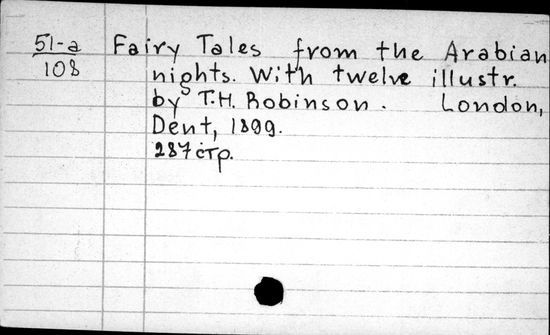 51-a
108
Fairy Tales from the Arabian
nights. With twelve illustr.
by T.H. Robinson. London,
Dent, 1899.
287 стр.